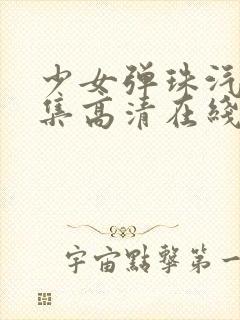 少女弹珠汽
集高清在綫
宇宙點擊第一